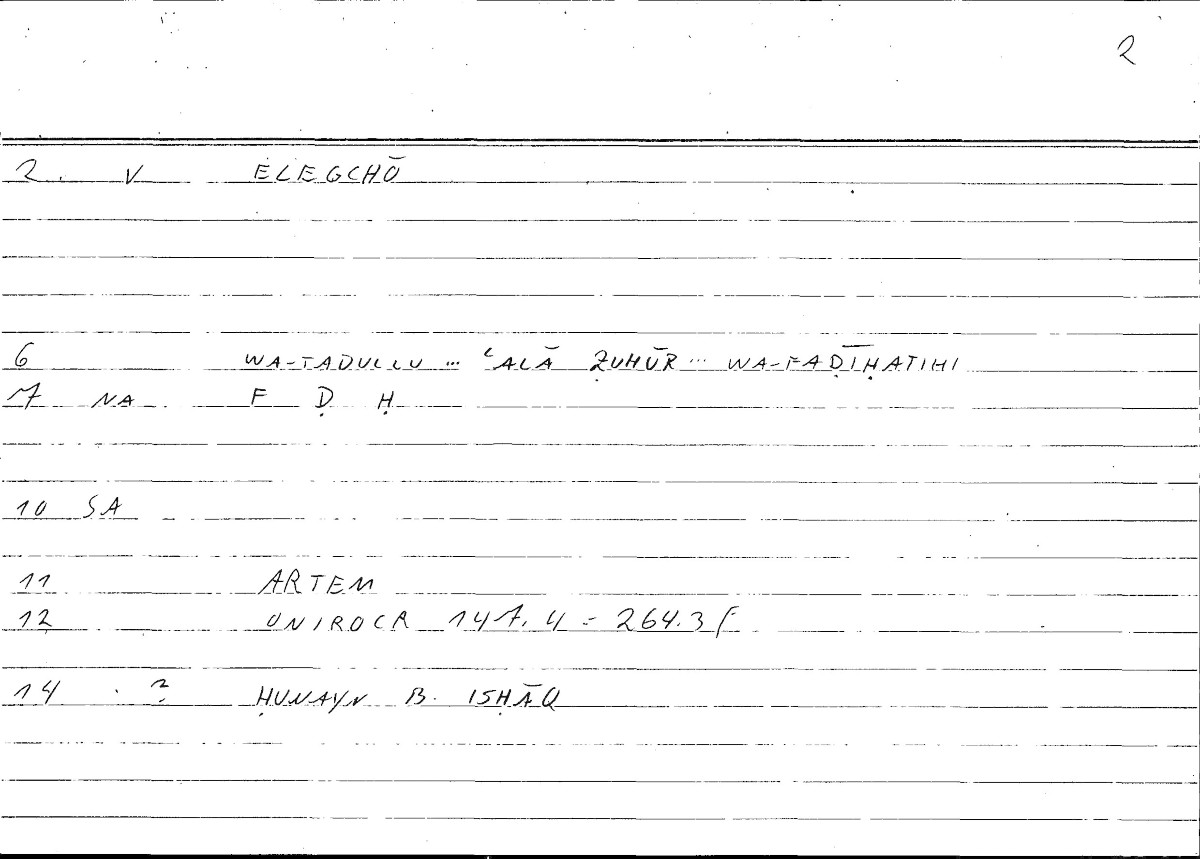 2
2. V ELEGCHŌ
6 WA-TADULLU ... ʿALĀ ẒUHŪR ... WA-FAḌĪḤATIHI
7 NA F Ḍ Ḥ
10 SA
11 ARTEM
12 ONIROCR 147.4 = 264.3 f
14 ? ḤUNAYN B. ISḤĀQ